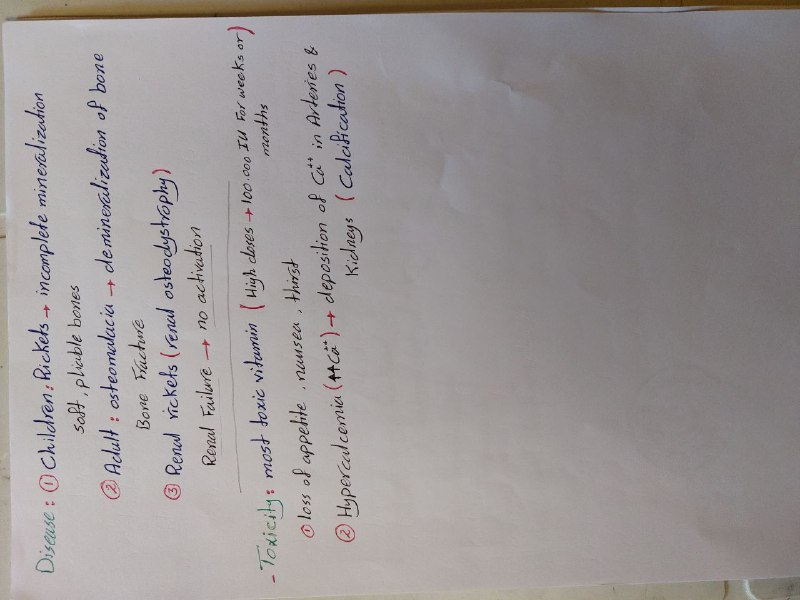 Disease: ① Children: Rickets → incomplete mineralization
soft, pliable bones
② Adult: osteomalacia → demineralization of bone
Bone Fracture
③ Renal rickets (renal osteodystrophy)
Renal Failure → no activation
- Toxicity: most toxic vitamin (High doses → 100.000 IU For weeks or)
months
① loss of appetite, nausea, thirst
② Hypercalcemia (↑↑Ca⁺⁺) → deposition of Ca⁺⁺ in Arteries &
Kidneys (Calcification)